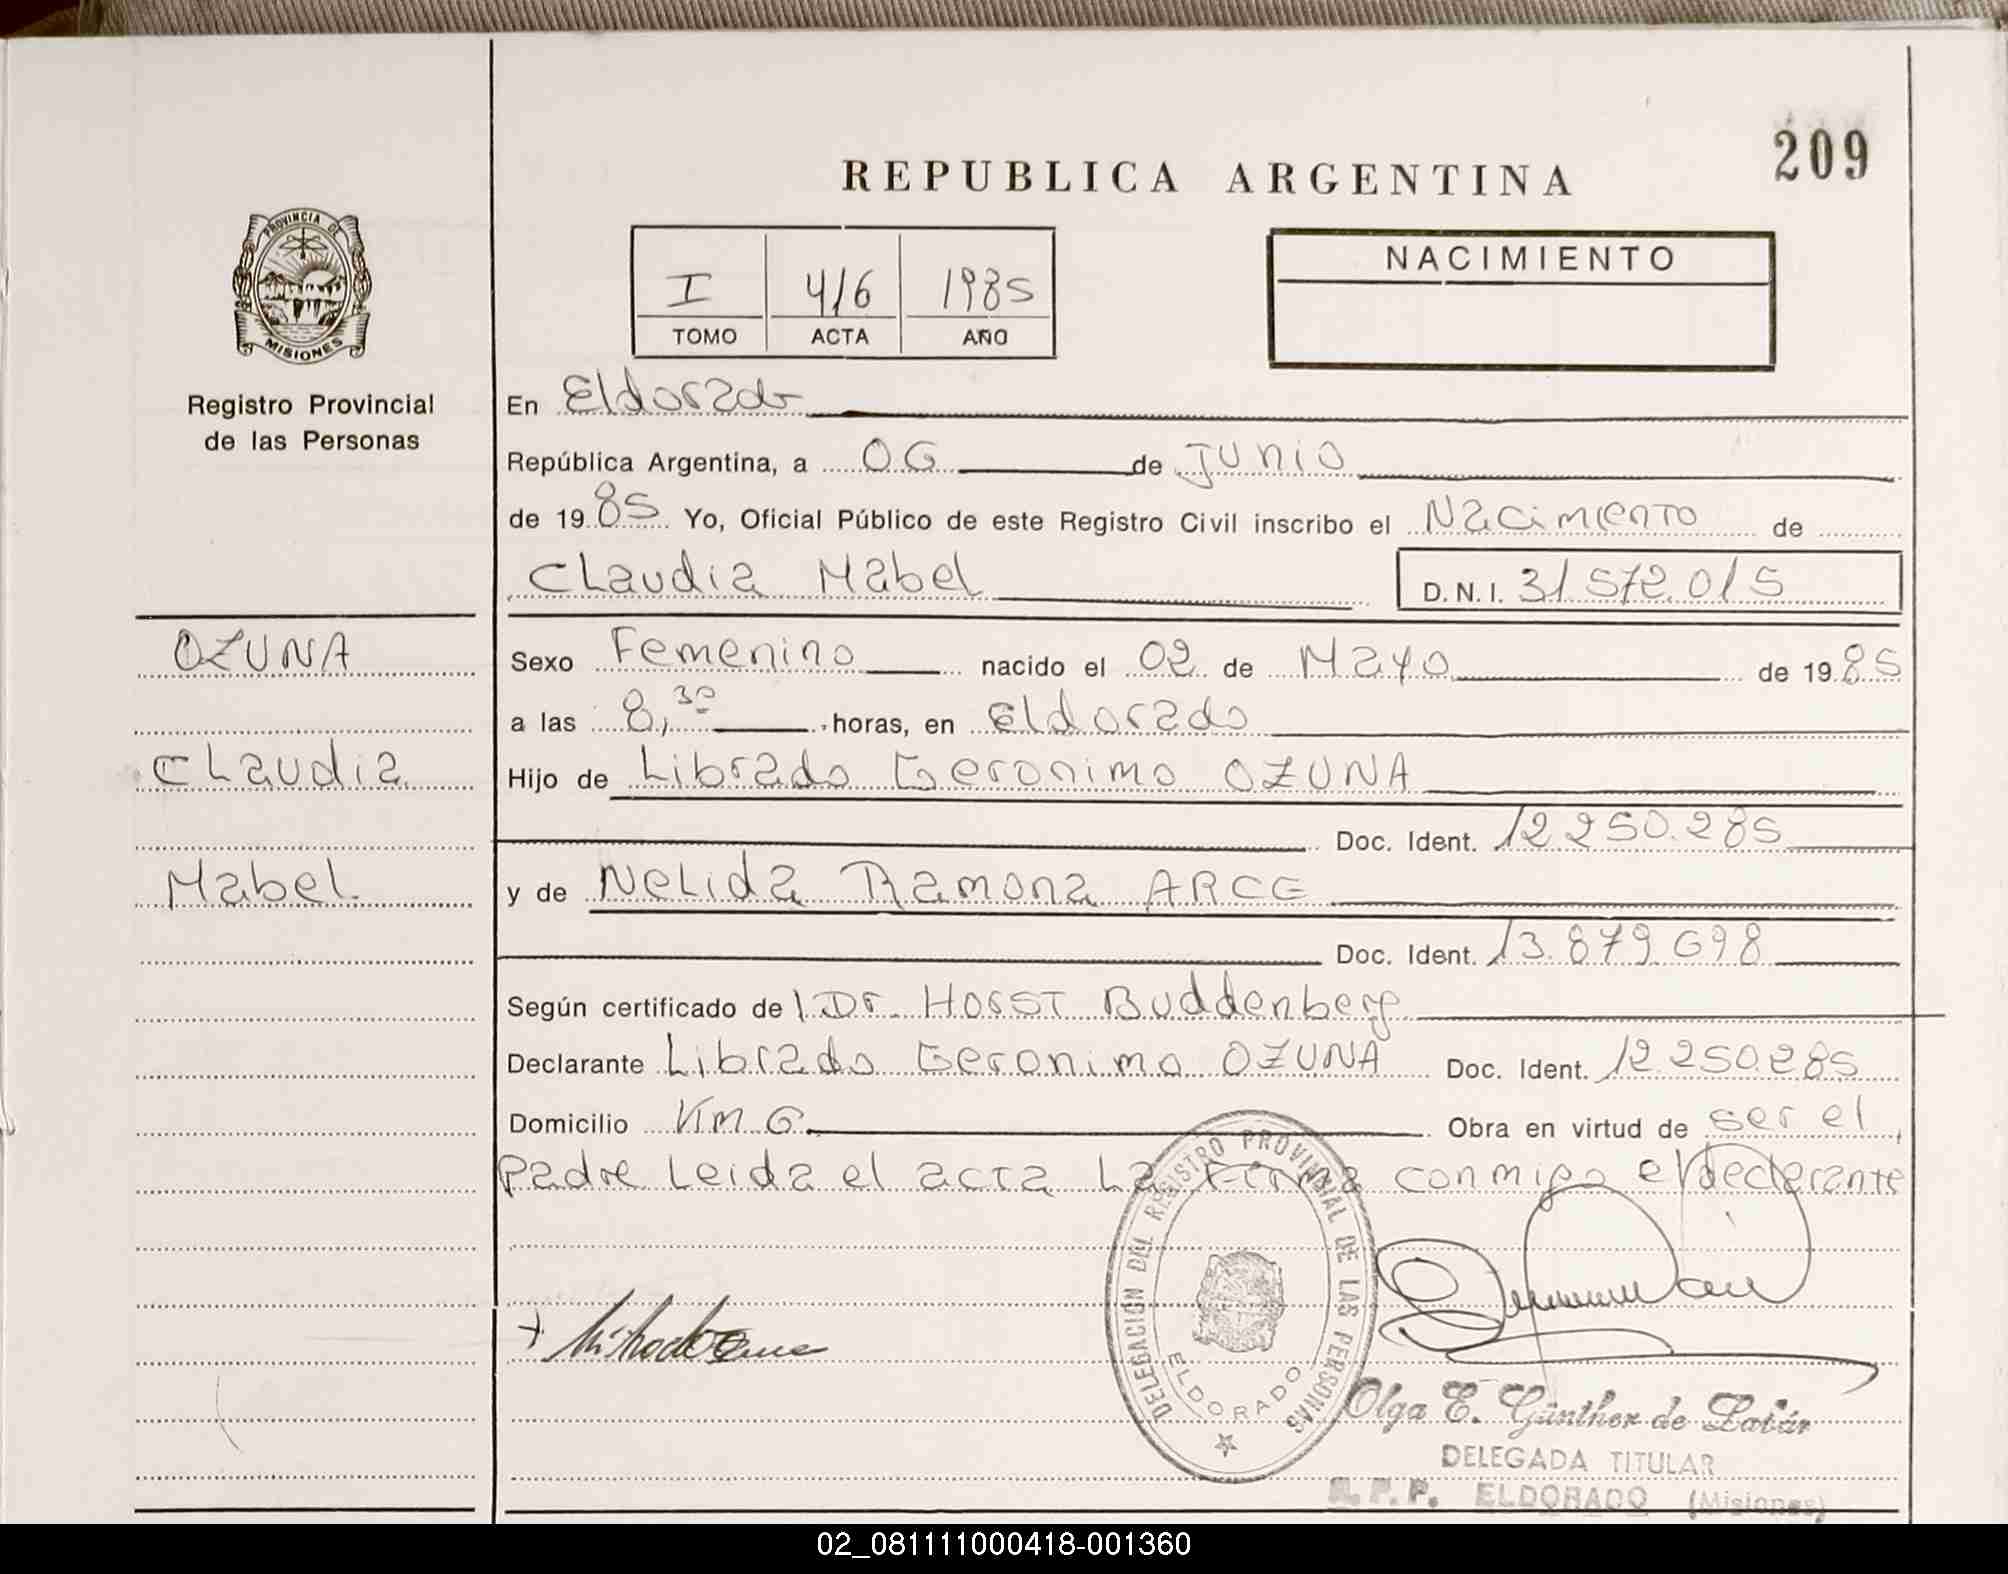 209
REPUBLICA ARGENTINA
PROVINCIA DE
MISIONES
Registro Provincial
de las Personas
I 416 1985
TOMO ACTA AÑO
NACIMIENTO
En Eldorado
República Argentina, a 06 de Junio
de 1985 Yo, Oficial Público de este Registro Civil inscribo el Nacimiento de
Claudia Mabel D. N. I. 31.572.015
OZUNA
Claudia
Mabel
Sexo Femenino nacido el 02 de Mayo de 1985
a las 8,30 horas, en Eldorado
Hijo de Librado Geronimo OZUNA
Doc. Ident. 12.250.285
y de Nelida Ramona ARCE
Doc. Ident. 13.879.698
Según certificado de Dr. Horst Buddenberg
Declarante Librado Geronimo OZUNA Doc. Ident. 12.250.285
Domicilio Km 6 Obra en virtud de ser el
padre Leida el acta La Firma conmigo el declarante
DELEGACIÓN DEL REGISTRO PROVINCIAL DE LAS PERSONAS
ELDORADO
Olga E. Günther de
DELEGADA TITULAR
R. P. P. ELDORADO (Misiones)
02_081111000418-001360